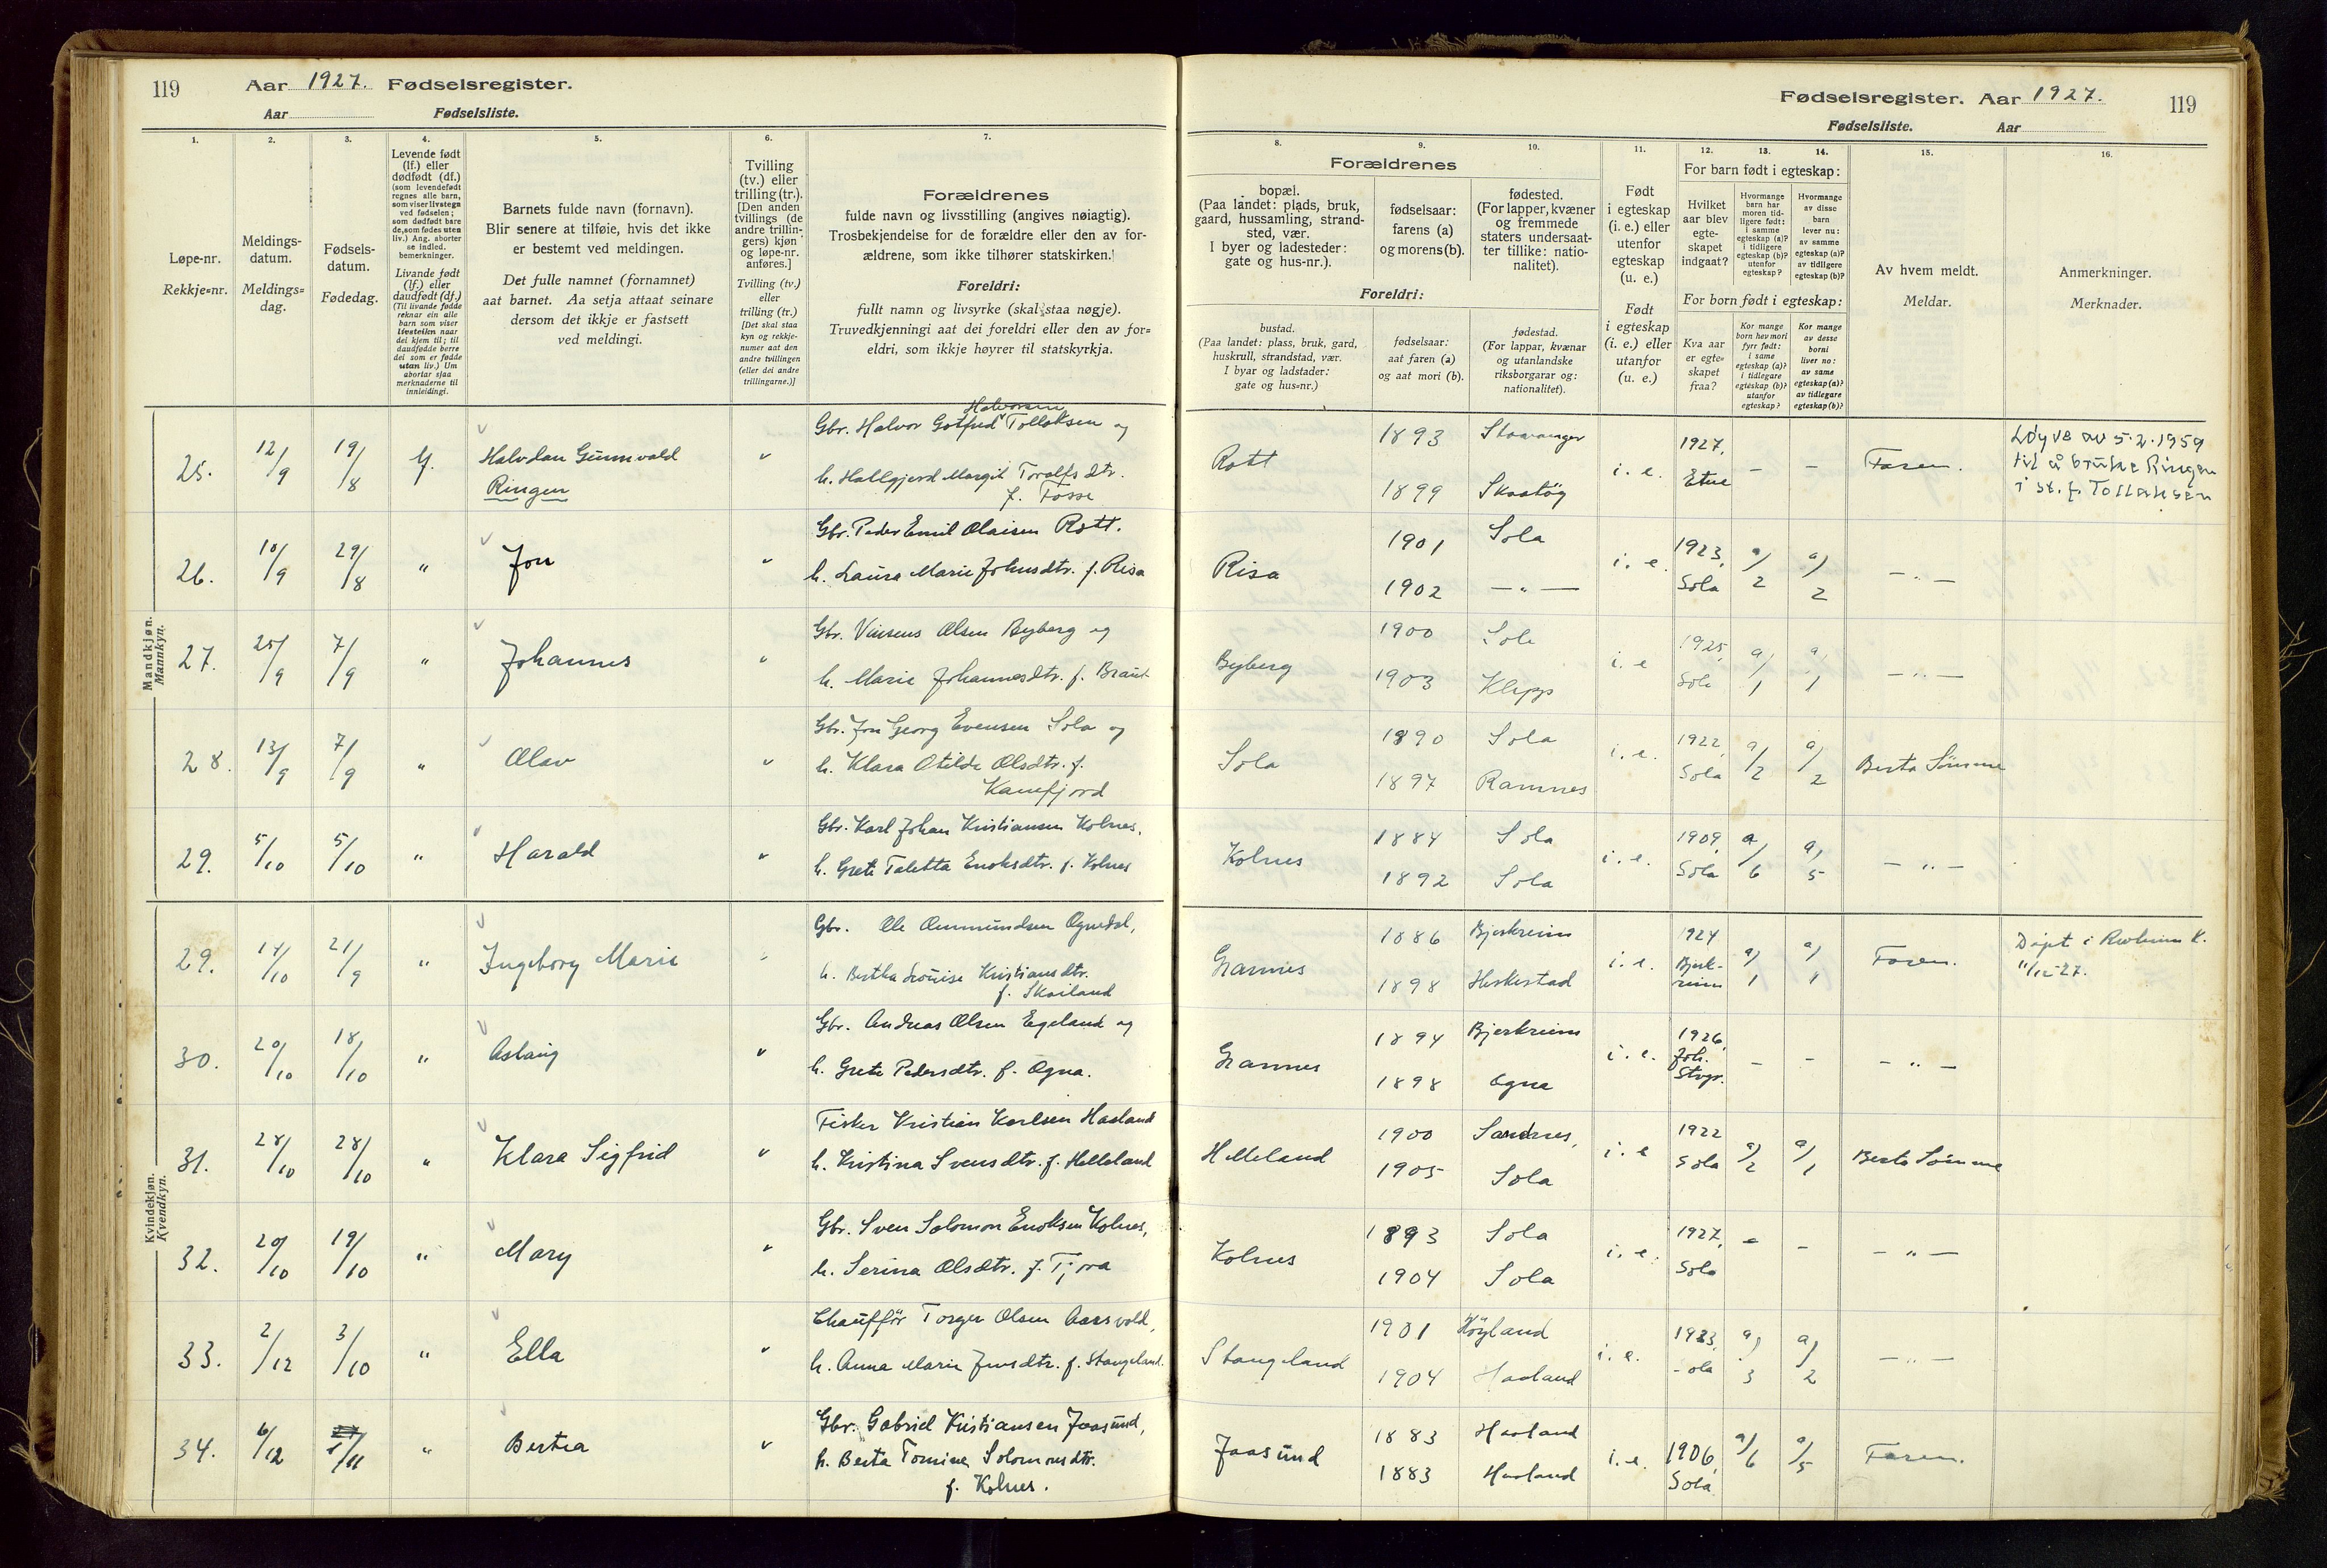 119 Aar 1927. Fødselsregister.
Aar Fødselsliste.
Fødselsregister. Aar 1927. 119
Fødselsliste. Aar
1. 2. 3. 4. 5. 6. 7. 8. 9. 10. 11. 12. 13. 14. 15. 16.
Løpe-nr.
Rekkje=nr.
Meldings-
datum.
Meldings=
dag.
Fødsels-
datum.
Fødedag.
Levende født
(lf.) eller
dødfødt (df.)
(som levendefødt
regnes alle barn,
som viser livstegn
ved fødselen;
som dødfødt bare
de, som fødes uten
liv.) Ang. aborter
se indled.
bemerkninger.
Livande fødd
(lf.) eller
daudfødt (df.)
(Til livande fødde
reknar ein alle
barn som viser
livsteikn naar
dei kjem til; til
daudfødde berre
dei som er fødde
utan liv.) Um
abortar sjaa
merknaderne til
innleidingi.
Barnets fulde navn (fornavn).
Blir senere at tilføie, hvis det ikke
er bestemt ved meldingen.
Det fulle namnet (fornamnet)
aat barnet. Aa setja attaat seinare
dersom det ikkje er fastsett
ved meldingi.
Tvilling
(tv.) eller
trilling (tr.).
[Den anden
tvillings (de
andre trillin-
gers) kjøn
og løpe-nr.
anføres.]
Tvilling (tv.)
eller
trilling (tr.)
[Det skal staa
kyn og rekkje-
numer aat den
andre tvillingen
(eller dei andre
trillingarne.)]
Forældrenes
fulde navn og livsstilling (angives nøiagtig).
Trosbekjendelse for de forældre eller den av for-
ældrene, som ikke tilhører statskirken.
Foreldri:
fullt namn og livsyrke (skal staa nøgje).
Truvedkjenningi aat dei foreldri eller den av for=
eldri, som ikkje høyrer til statskyrkja.
Forældrenes
bopæl.
(Paa landet: plads, bruk,
gaard, hussamling, strand-
sted, vær.
I byer og ladesteder:
gate og hus-nr.).
fødselsaar:
farens (a)
og morens (b).
fødested.
(For lapper, kvæner
og fremmede
staters undersaat-
ter tillike: natio-
nalitet).
Foreldri:
bustad.
(Paa landet: plass, bruk, gard,
huskrull, strandstad, vær.
I byar og ladstader:
gate og hus=nr.)
fødselsaar:
aat faren (a)
og aat mori (b).
fødestad.
(For lappar, kvænar
og utanlandske
riksborgarar og:
nationalitet).
Født
i egteskap
(i. e.) eller
utenfor
egteskap
(u. e.)
Født
i egteskap
(i. e.) eller
utanfor
(u. e.)
For barn født i egteskap:
Hvilket
aar blev
egte-
skapet
indgaat?
Hvormange
barn har
moren tid-
ligere født:
i samme
egteskap (a)?
i tidligere
egteskap (b)?
utenfor
egteskap?
Hvormange
av disse
barn
lever nu:
av samme
egteskap (a)?
av tidligere
egteskap (b)?
For born født i egteskap:
Kva aar
er egte=
skapet
fraa?
Kor mange
born hev mori
fyrr født:
i same
egteskap (a)?
i tidlegare
egteskap (b)?
utanfor
egteskap?
Kor mange
av desse
borni
liver no:
av same
egteskap (a)?
av tidlegare
egteskap (b)?
Av hvem meldt.
Meldar.
Anmerkninger.
Merknader.
Mandkjøn.
Mannkyn.
25. 12/9 19/8 lf. Halvdan Gunnvald
Ringen
Halvorsen
Gbr. Halvor Gotfred Tollaksen og
h. Hallgjerd Margit Toralfsdtr.
f. Fosse
Rott 1893 Stavanger
1899 Skaatøy
i. e. 1927, Etne – – Faren.
Løyve av 5.2.1959
til å bruke Ringen
i st. f. Tollaksen
26. 10/9 29/8 " Jon "
Gbr. Peder Emil Olaisen Rott.
h. Laura Marie Johnsdtr. f. Risa
Risa 1901 Sola
1902 — " —
i. e. 1923, Sola a/2 a/2 — " —
27. 25/9 7/9 " Johannes "
Gbr. Vinsens Olsen Byberg og
h. Marie Johannesdtr. f. Braut
Byberg 1900 Sola
1903 Klepp
i. e 1925, Sola a/1 a/1 — " —
28. 13/9 7/9 " Olav "
Gbr. Jon Georg Evensen Sola og
h. Klara Otilde Olsdtr. f.
Kamfjord
Sola 1890 Sola
1897 Ramnes
i. e. 1922, Sola a/2 a/2 Berta Sømme
29. 5/10 5/10 " Harald "
Gbr. Karl Johan Kristiansen Kolnes,
h. Grete Taletta Enoksdtr. f. Kolnes
Kolnes 1884 Sola
1892 Sola
i. e. 1909, Sola a/6 a/5 — " —
Kvindekjøn.
Kvendkyn.
29. 14/10 21/9 " Ingeborg Marie "
Gbr. Ole Ommundsen Ognedal,
h. Bertha Lovise Kristiansdtr.
f. Skailand
Grannes 1886 Bjerkreim
1898 Heskestad
i. e. 1924 Bjerk-
reim a/1 a/1 Faren.
Døpt i
11/12-27.
30. 20/10 18/10 " Aslaug "
Gbr. Andreas Olsen Egeland og
h. Grete Pedersdtr. f. Ogna.
Grannes 1894 Bjerkreim
1898 Ogna
i. e. 1926, Joh. Stvgr. – – — " —
31. 28/10 28/10 " Klara Sigfrid "
Fisker Kristian Karlsen Haaland
h. Kristina Svensdtr. f. Helleland
Helleland 1900 Sandnes,
1905 Sola
i. e 1922 Sola a/2 a/1 Berta Sømme
32. 20/10 19/10 " Mary "
Gbr. Sven Solomon Enoksen Kolnes,
h. Serina Olsdtr. f. Tjora
Kolnes 1893 Sola
1904 Sola
i. e. 1927, Sola – – — " —
33. 2/12 3/10 " Ella "
Chauffør Torger Olsen Aarsvold,
h. Anna Marie Jensdtr. f. Stangeland.
Stangeland 1901 Høyland
1904 Haaland
i. e. 1923, Sola a/3 a/2 — " —
34. 6/12 1/11 " Bertea "
Gbr. Gabriel Kristiansen Jaasund,
h. Berta Tomine Solomonsdtr.
f. Kolnes.
Jaasund 1883 Haaland
1883 Haaland
i. e. 1906, Sola a/6 a/5 Faren.